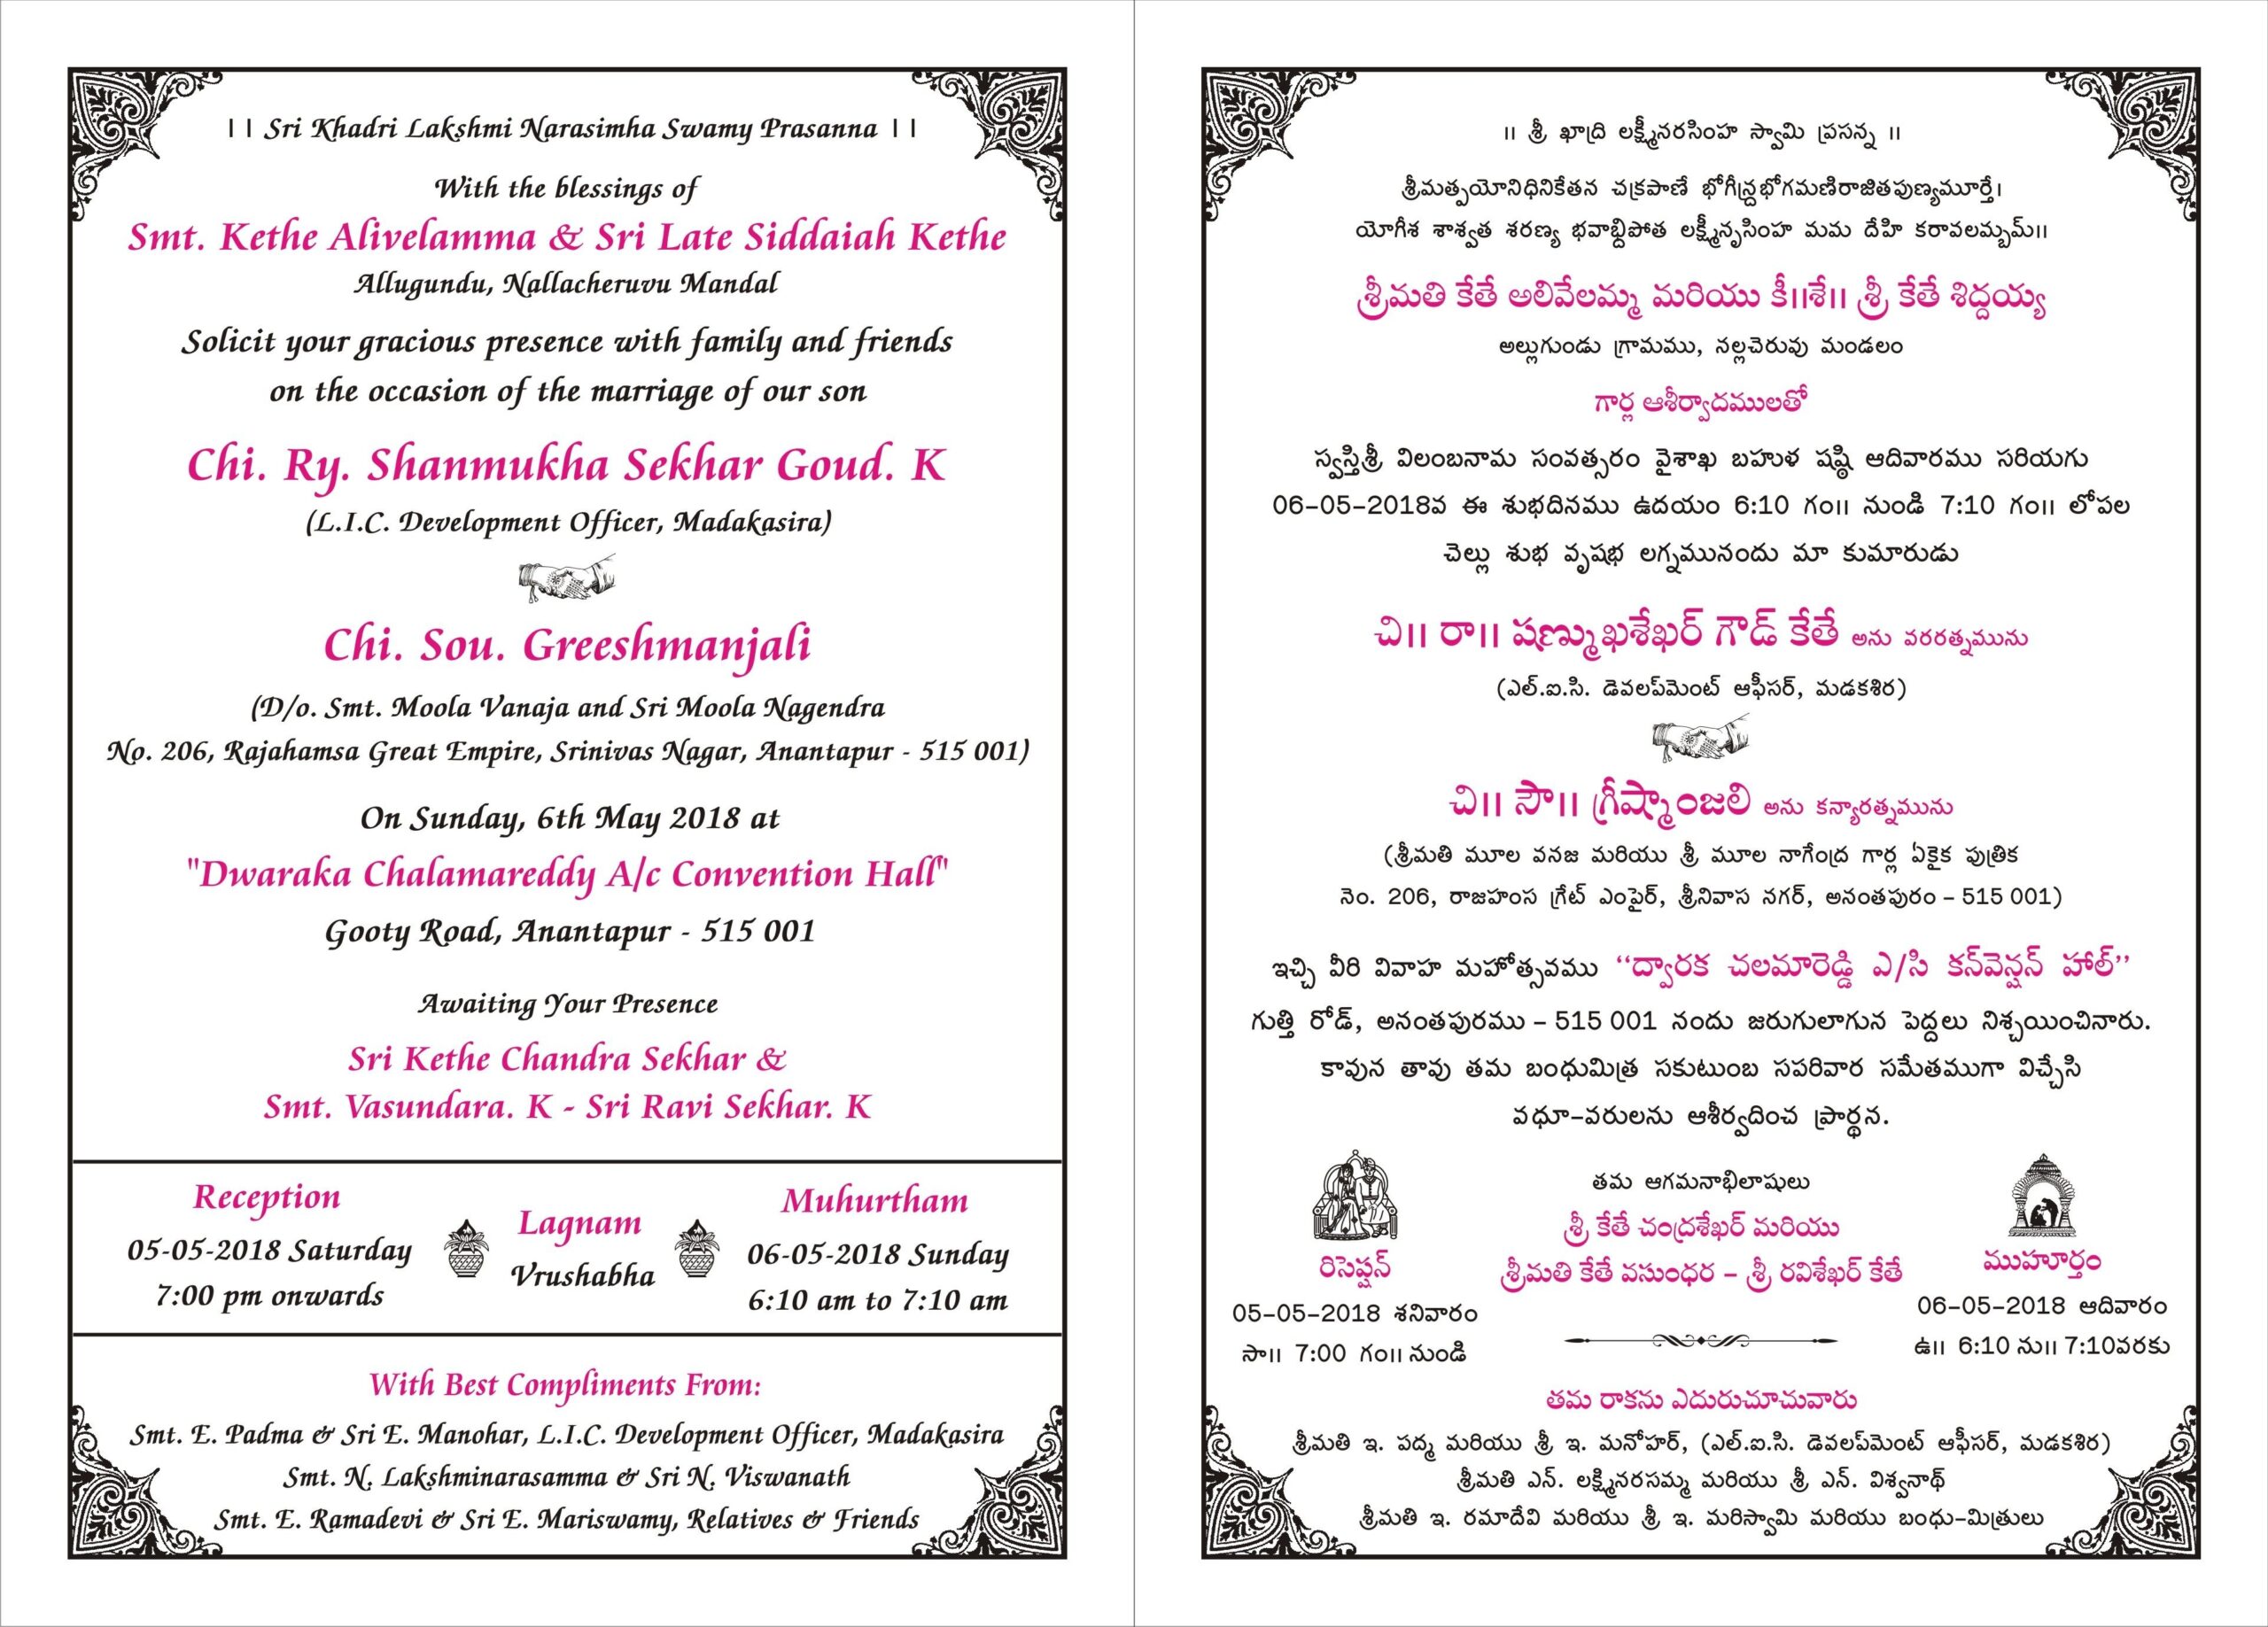 ।। Sri Khadri Lakshmi Narasimha Swamy Prasanna ।।
With the blessings of
Smt. Kethe Alivelamma & Sri Late Siddaiah Kethe
Allugundu, Nallacheruvu Mandal
Solicit your gracious presence with family and friends
on the occasion of the marriage of our son
Chi. Ry. Shanmukha Sekhar Goud. K
(L.I.C. Development Officer, Madakasira)
Chi. Sou. Greeshmanjali
(D/o. Smt. Moola Vanaja and Sri Moola Nagendra
No. 206, Rajahamsa Great Empire, Srinivas Nagar, Anantapur - 515 001)
On Sunday, 6th May 2018 at
"Dwaraka Chalamareddy A/c Convention Hall"
Gooty Road, Anantapur - 515 001
Awaiting Your Presence
Sri Kethe Chandra Sekhar &
Smt. Vasundara. K - Sri Ravi Sekhar. K
Reception
05-05-2018 Saturday
7:00 pm onwards
Lagnam
Vrushabha
Muhurtham
06-05-2018 Sunday
6:10 am to 7:10 am
With Best Compliments From:
Smt. E. Padma & Sri E. Manohar, L.I.C. Development Officer, Madakasira
Smt. N. Lakshminarasamma & Sri N. Viswanath
Smt. E. Ramadevi & Sri E. Mariswamy, Relatives & Friends
॥ శ్రీ ఖాద్రి లక్ష్మీనరసింహ స్వామి ప్రసన్న ॥
శ్రీమత్పయోనిధినికేతన చక్రపాణే భోగీన్ద్రభోగమణిరాజితపుణ్యమూర్తే।
యోగీశ శాశ్వత శరణ్య భవాబ్ధిపోత లక్ష్మీనృసింహ మమ దేహి కరావలమ్బమ్॥
శ్రీమతి కేతే అలివేలమ్మ మరియు కీ॥శే॥ శ్రీ కేతే శిద్దయ్య
అల్లుగుండు గ్రామము, నల్లచెరువు మండలం
గార్ల ఆశీర్వాదములతో
స్వస్తిశ్రీ విలంబనామ సంవత్సరం వైశాఖ బహుళ షష్ఠి ఆదివారము సరియగు
06-05-2018వ ఈ శుభదినము ఉదయం 6:10 గం॥ నుండి 7:10 గం॥ లోపల
చెల్లు శుభ వృషభ లగ్నమునందు మా కుమారుడు
చి॥ రా॥ షణ్ముఖశేఖర్ గౌడ్ కేతే అను వరరత్నమును
(ఎల్.ఐ.సి. డెవలప్‌మెంట్ ఆఫీసర్, మడకశిర)
చి॥ సౌ॥ గ్రీష్మాంజలి అను కన్యారత్నమును
(శ్రీమతి మూల వనజ మరియు శ్రీ మూల నాగేంద్ర గార్ల ఏకైక పుత్రిక
నెం. 206, రాజహంస గ్రేట్ ఎంపైర్, శ్రీనివాస నగర్, అనంతపురం - 515 001)
ఇచ్చి వీరి వివాహ మహోత్సవము “ద్వారక చలమారెడ్డి ఎ/సి కన్‌వెన్షన్ హాల్”
గుత్తి రోడ్, అనంతపురము - 515 001 నందు జరుగులాగున పెద్దలు నిశ్చయించినారు.
కావున తావు తమ బంధుమిత్ర సకుటుంబ సపరివార సమేతముగా విచ్చేసి
వధూ-వరులను ఆశీర్వదించ ప్రార్థన.
రిసెప్షన్
05-05-2018 శనివారం
సా॥ 7:00 గం॥ నుండి
తమ ఆగమనాభిలాషులు
శ్రీ కేతే చంద్రశేఖర్ మరియు
శ్రీమతి కేతే వసుంధర - శ్రీ రవిశేఖర్ కేతే
ముహూర్తం
06-05-2018 ఆదివారం
ఉ॥ 6:10 ను॥ 7:10వరకు
తమ రాకను ఎదురుచూచువారు
శ్రీమతి ఇ. పద్మ మరియు శ్రీ ఇ. మనోహర్, (ఎల్.ఐ.సి. డెవలప్‌మెంట్ ఆఫీసర్, మడకశిర)
శ్రీమతి ఎన్. లక్ష్మినరసమ్మ మరియు శ్రీ ఎన్. విశ్వనాథ్
శ్రీమతి ఇ. రమాదేవి మరియు శ్రీ ఇ. మరిస్వామి మరియు బంధు-మిత్రులు